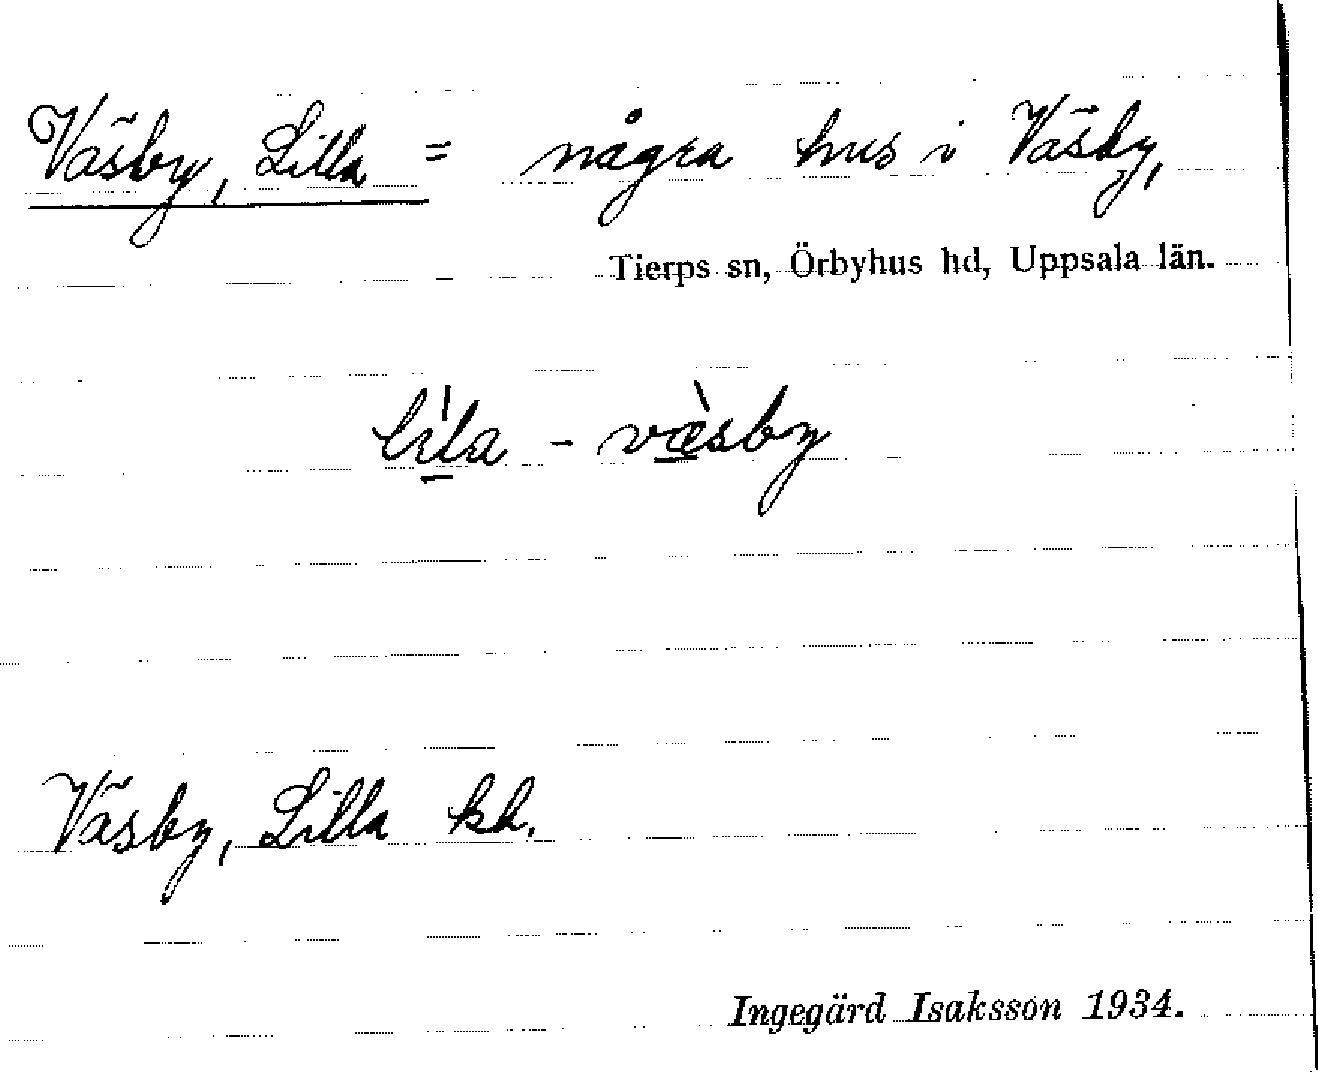 Väsby, Lilla = några hus i Väsby,
Tierps sn, Örbyhus hd, Uppsala län.
lìla - væ̀sby
Väsby, Lilla kh.
Ingegärd Isaksson 1934.